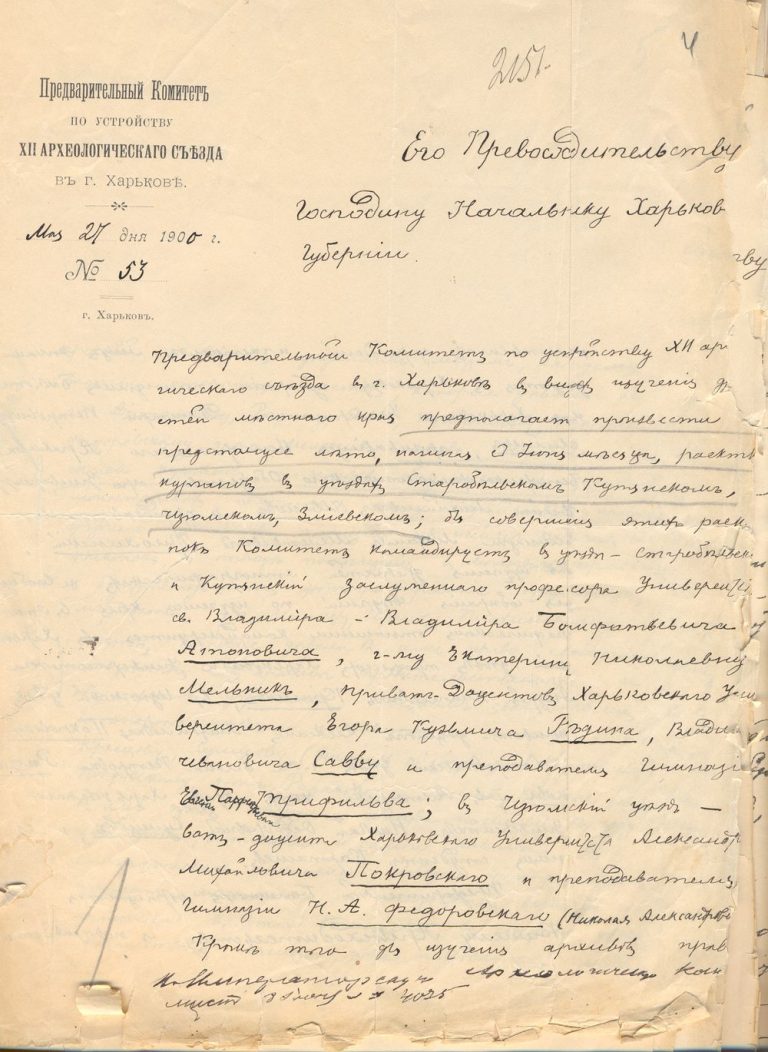 4
2151.
Предварительный Комитетъ
по устройству
XII АРХЕОЛОГИЧЕСКАГО СЪѢЗДА
въ г. Харьковѣ.
Мая 27 дня 1900 г.
№ 53
г. Харьковъ.
Его Превосходительству
Господину Начальнику Харьков
Губерніи.
тву
Предварительный Комитетъ по устройству XII ар
гическаго съѣзда въ г. Харьковѣ въ видахъ изученія др
стей мѣстнаго края предполагаетъ произвести
предстоящее лѣто, начиная съ Іюня мѣсяца, раск
кургановъ въ уѣздахъ Старобѣльскомъ, Купянскомъ,
Изюмскомъ, Зміевскомъ; для совершенія этихъ раско
покъ Комитетъ командируетъ въ уѣзды – Старобѣльск
и Купянскій заслуженнаго профессора Универси
св. Владиміра – Владиміра Бонифатьевича
Антоновича, г-жу Екатерину Николаевну
Мельникъ, приватъ-доцентовъ Харьковскаго Уни
верситета Егора Кузьмича Рѣдина, Влади
Ивановича Савву и преподавателя Гимназі
Евгенія Парфеновича Трифильева; въ Изюмскій уѣздъ –
ватъ-доцента Харьковскаго Университета Александр
Михайловича Покровскаго и преподавателя
Гимназіи Н. А. Федоровскаго (Николая Александрови
Кромѣ того для изученія архивовъ прав
Императорскую Археологическую Ком
4025